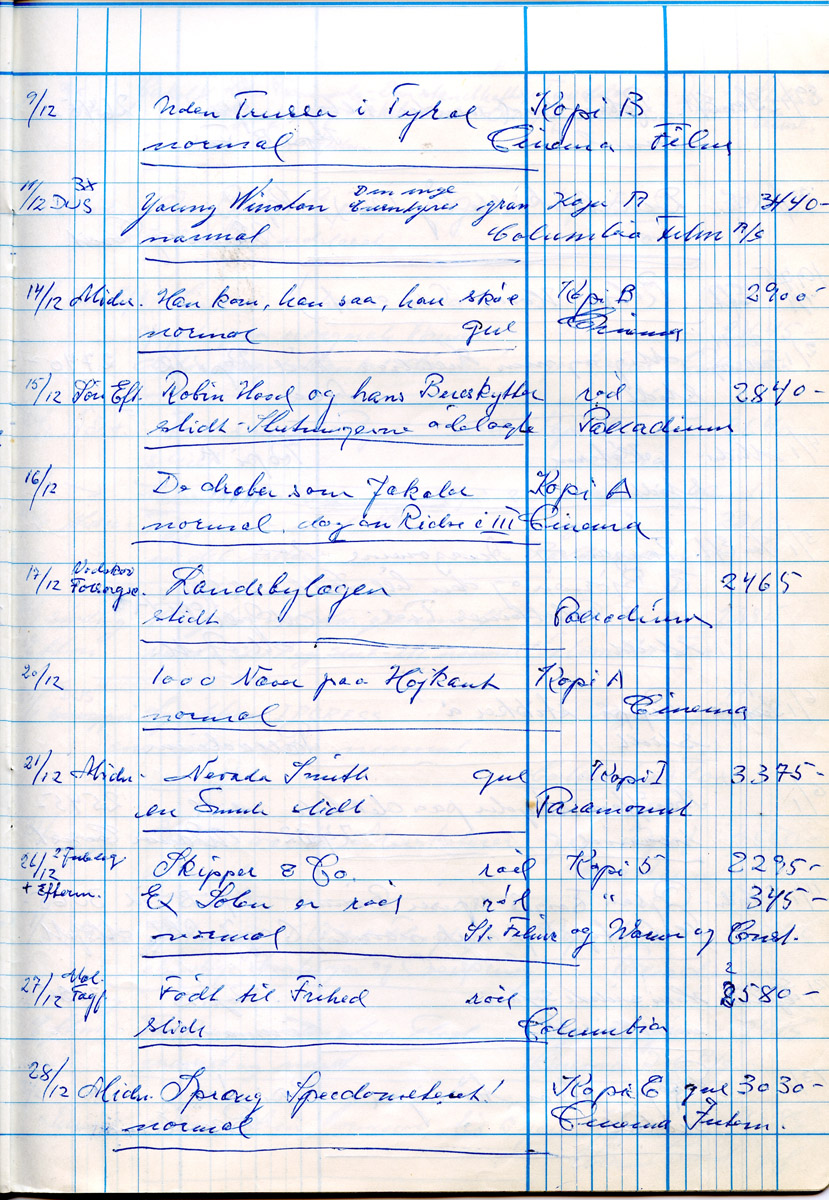 9/12 Uden Trusser i Tyrol Kopi B
normal Cinema Film
11/12 DUS Bx Young Winston Den unge Eventyrer grøn Kopi A 3440-
normal Columbia Film A/S
14/12 Midn. Han kom, han saa, han skøe Kopi B 2900-
normal gul Cinema
15/12 Søn Eft. Robin Hood og hans Bueskytter rød 2840-
slidt - Slutningerne ødelagte Palladium
16/12 De dræber som Jakaler Kopi A
normal, dog en Ridse i III Cinema
17/12 Landsbylægen 2465
slidt Palladium
20/12 1000 Næver paa Højkant Kopi A
normal Cinema
21/12 Midn. Nevada Smith gul Kopi I 3375-
en Smule slidt Paramount
26/12 2 Juledag Skipper & Co. rød Kopi 5 2295-
+ Efterm. Ex Solen er rød rød " 345-
normal St. Films og Warner og Const.
27/12 Født til Frihed rød 2 2580-
slidt Columbia
28/12 Midn. Spræng Speedometeret! Kopi E gul 3030-
normal Cinema Intern.